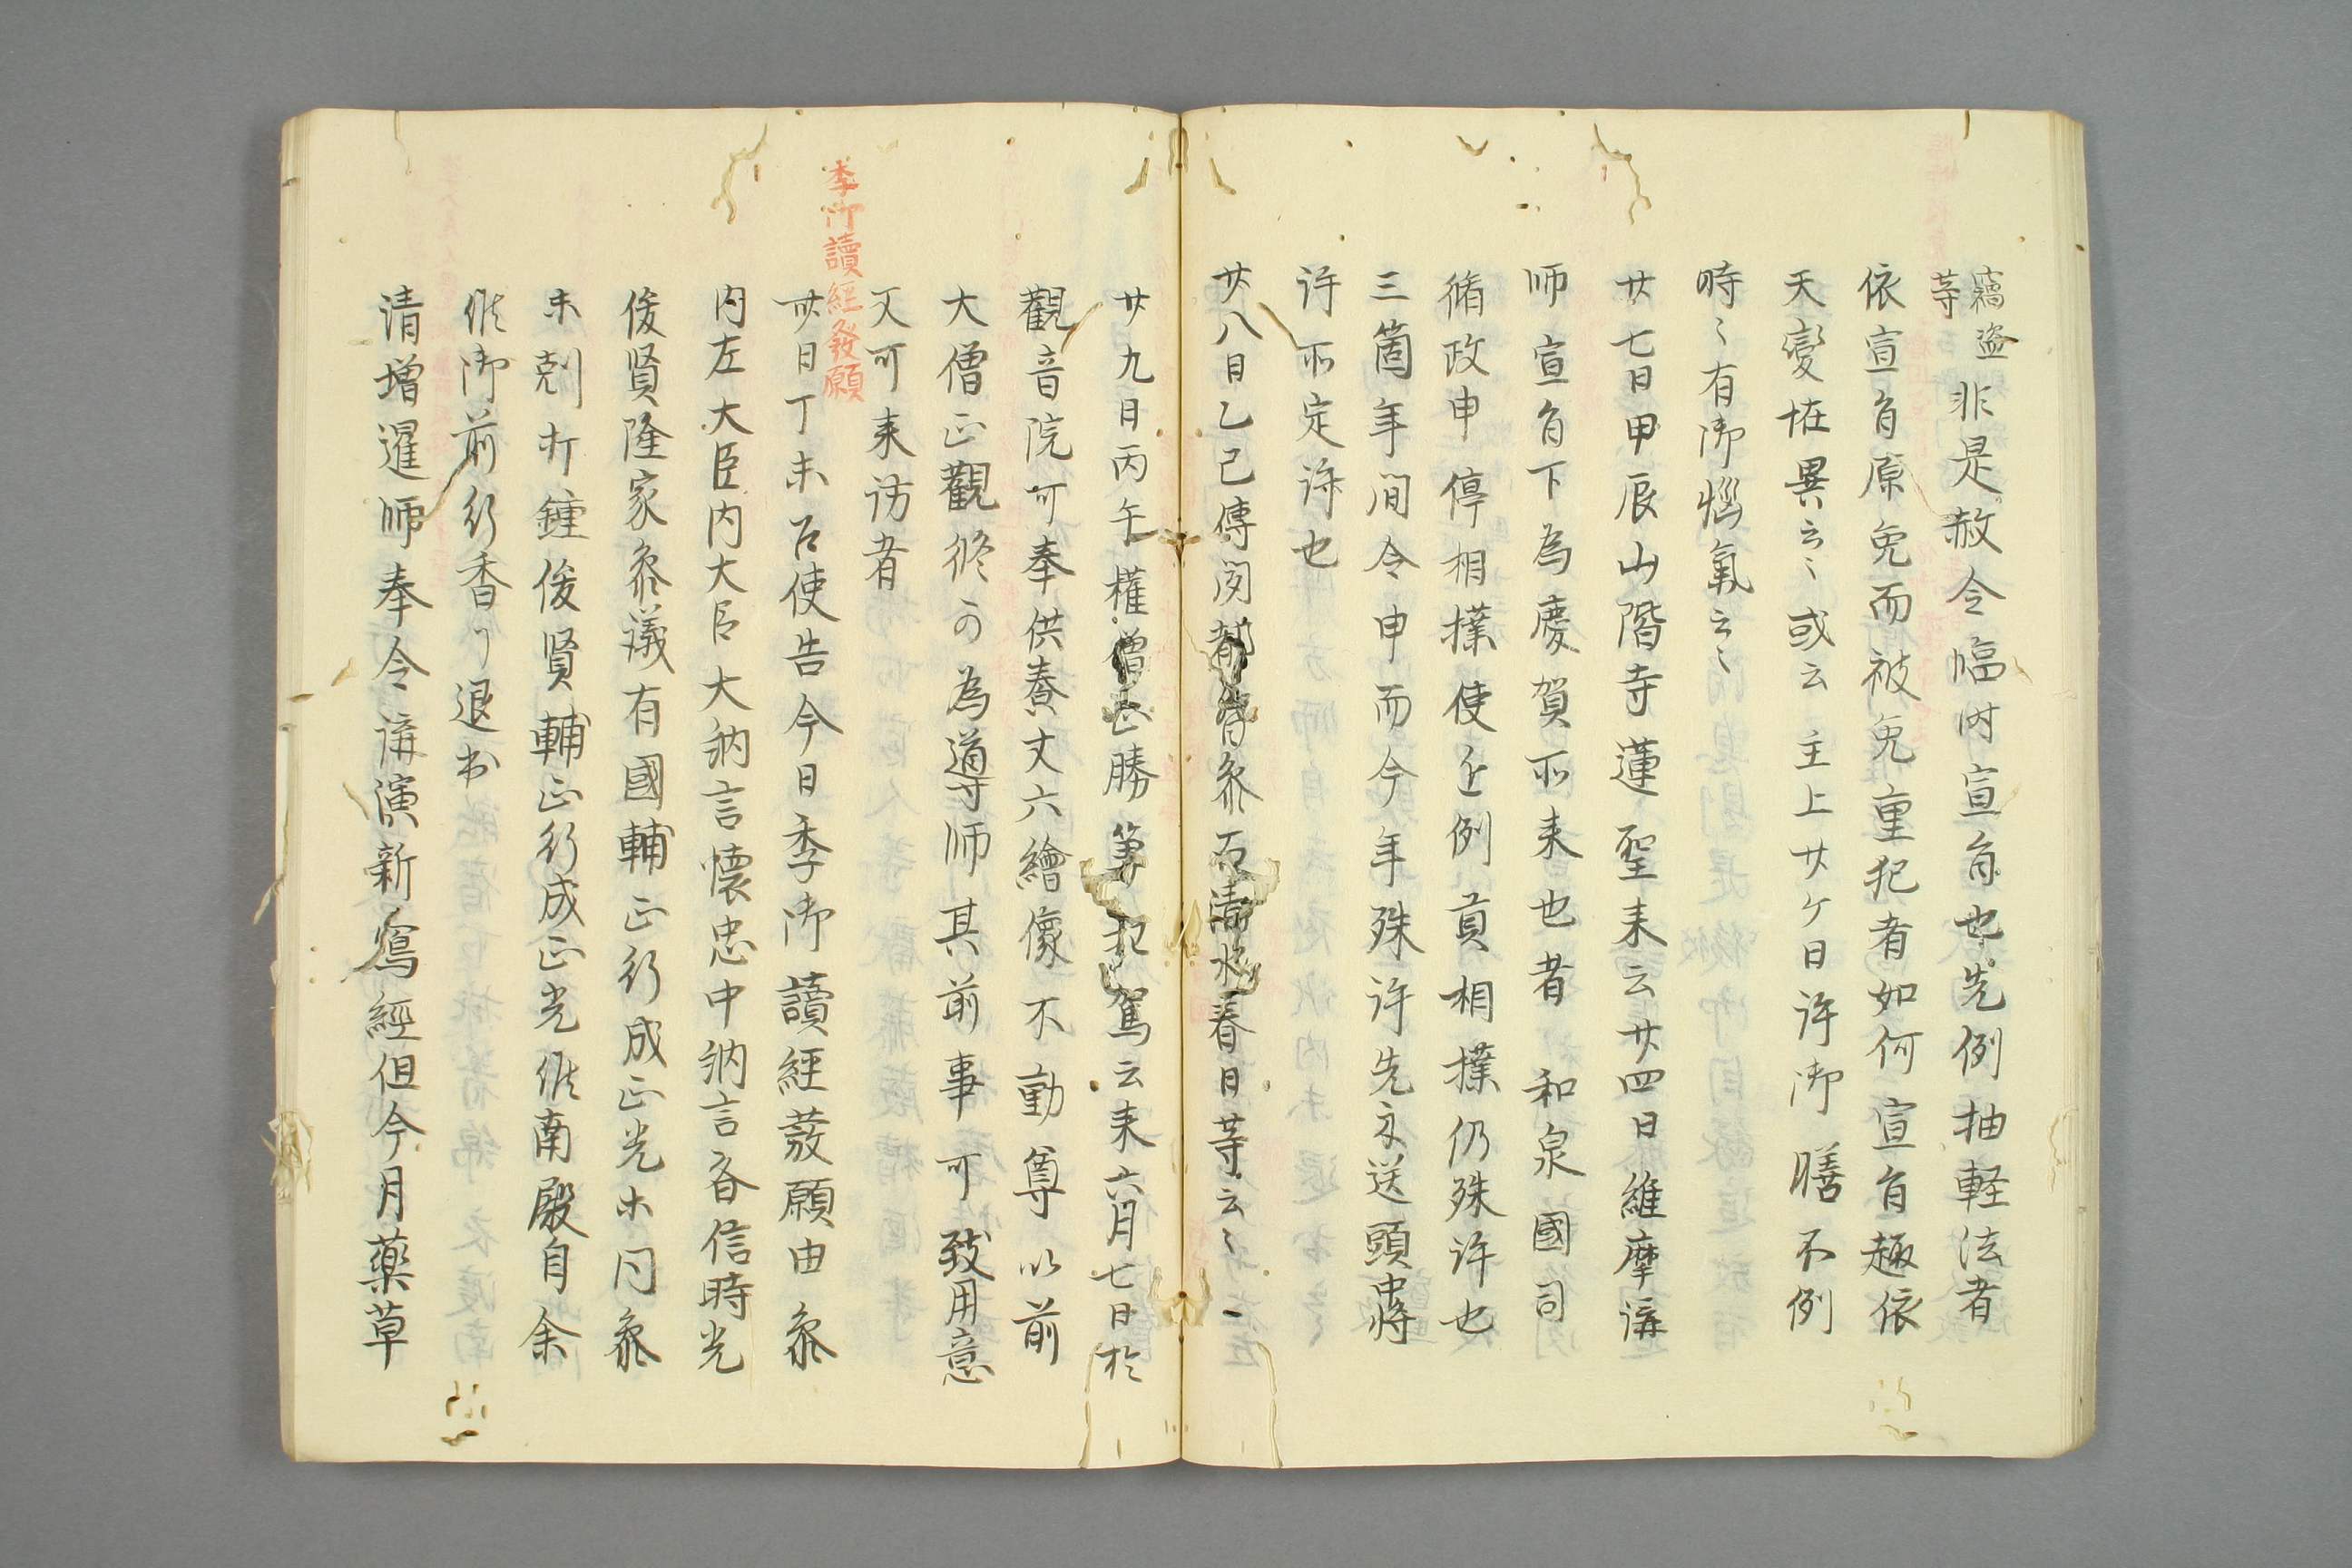 竊盗等非是赦令幅内宣旨也先例抽軽法者
依宣旨原免而被免重犯者如何宣旨趣依
天變恠異云〻或云主上廿ケ日許御膳不例
時〻有御惱氣云〻
廿七日甲辰山階寺蓮聖来云廿四日維摩講
师宣旨下為慶賀所来也者和泉國司
脩政申停相撲使近例貢相撲仍殊許也
三箇年間令申而今年殊許先文送頭中将
許所定許也
廿八日乙巳傳聞都督参石清水春日等云〻
廿九日丙午權僧正勝筭犯駕云来六月七日於
觀音院可奉供養丈六繪像不動尊以前
大僧正觀修可為導师其前事可致用意
又可来訪者
季御讀經發願
卅日丁未召使告今日季御讀経發願由参
内左大臣内大臣大納言懐忠中納言斉信時光
俊賢隆家参議有國輔正行成正光ホ同参
未剋打鍾俊賢輔正行成正光候南殿自余
候御前行香了退出
清増暹师奉令講演新寫經但今月藥草